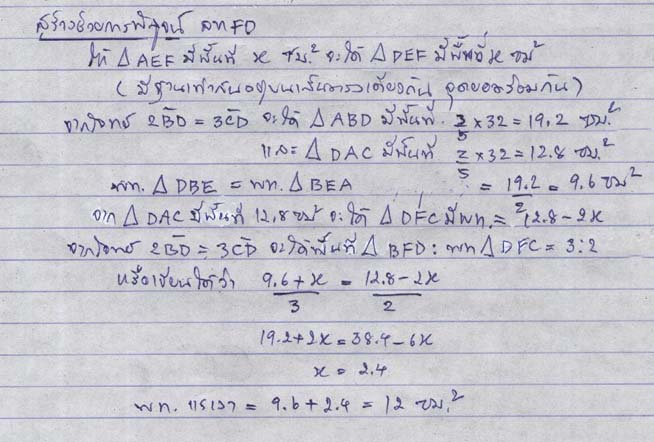 สร้างด้วยการพิสูจน์ ลาก FD
ให้ △ AEF มีพื้นที่ x ซม.² จะได้ △ DEF มีพื้นที่ x ซม²
(มีฐานเท่ากันอยู่บนเส้นตรงเดียวกัน จุดยอดร่วมกัน)
จากโจทย์ 2BD = 3CD จะได้ △ ABD มีพื้นที่ 3/5 × 32 = 19.2 ซม.²
และ △ DAC มีพื้นที่ 2/5 × 32 = 12.8 ซม²
พท. △ DBE = พท. △ BEA = 19.2/2 = 9.6 ซม²
จาก △ DAC มีพื้นที่ 12.8 ซม² จะได้ △ DFC มีพท. = 12.8 - 2x
จากโจทย์ 2BD = 3CD จะได้พื้นที่ △ BFD : พท △ DFC = 3:2
หรือเขียนได้ว่า 9.6 + x/3 = 12.8 - 2x/2
19.2 + 2x = 38.4 - 6x
x = 2.4
พท. แรเงา = 9.6 + 2.4 = 12 ซม.²